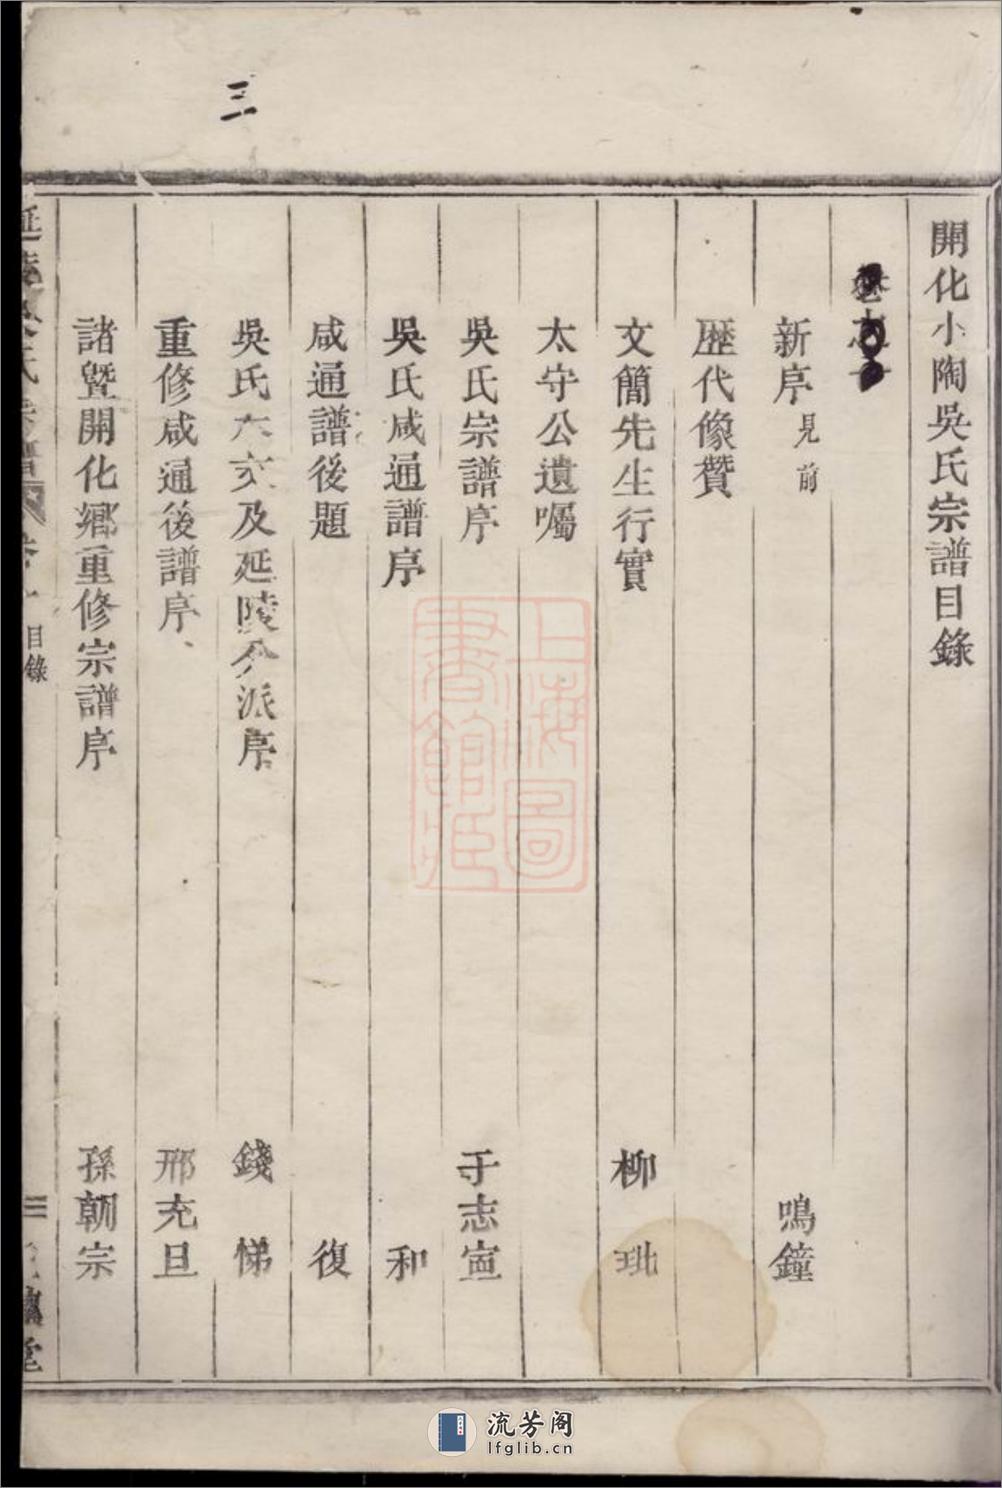 三
開化小陶吳氏宗譜目錄
新序見前 鳴鐘
歷代像贊
文簡先生行實 柳玭
太守公遺囑
吳氏宗譜序 于志寍
吳氏咸通譜序 和
咸通譜後題 復
吳氏六支及延陵分派序 錢悌
重修咸通後譜序 邢充旦
諸暨開化鄉重修宗譜序 孫朝宗
延陵吳氏宗譜 卷一 目錄
上海圖書館藏
流芳阁
lfglib.cn